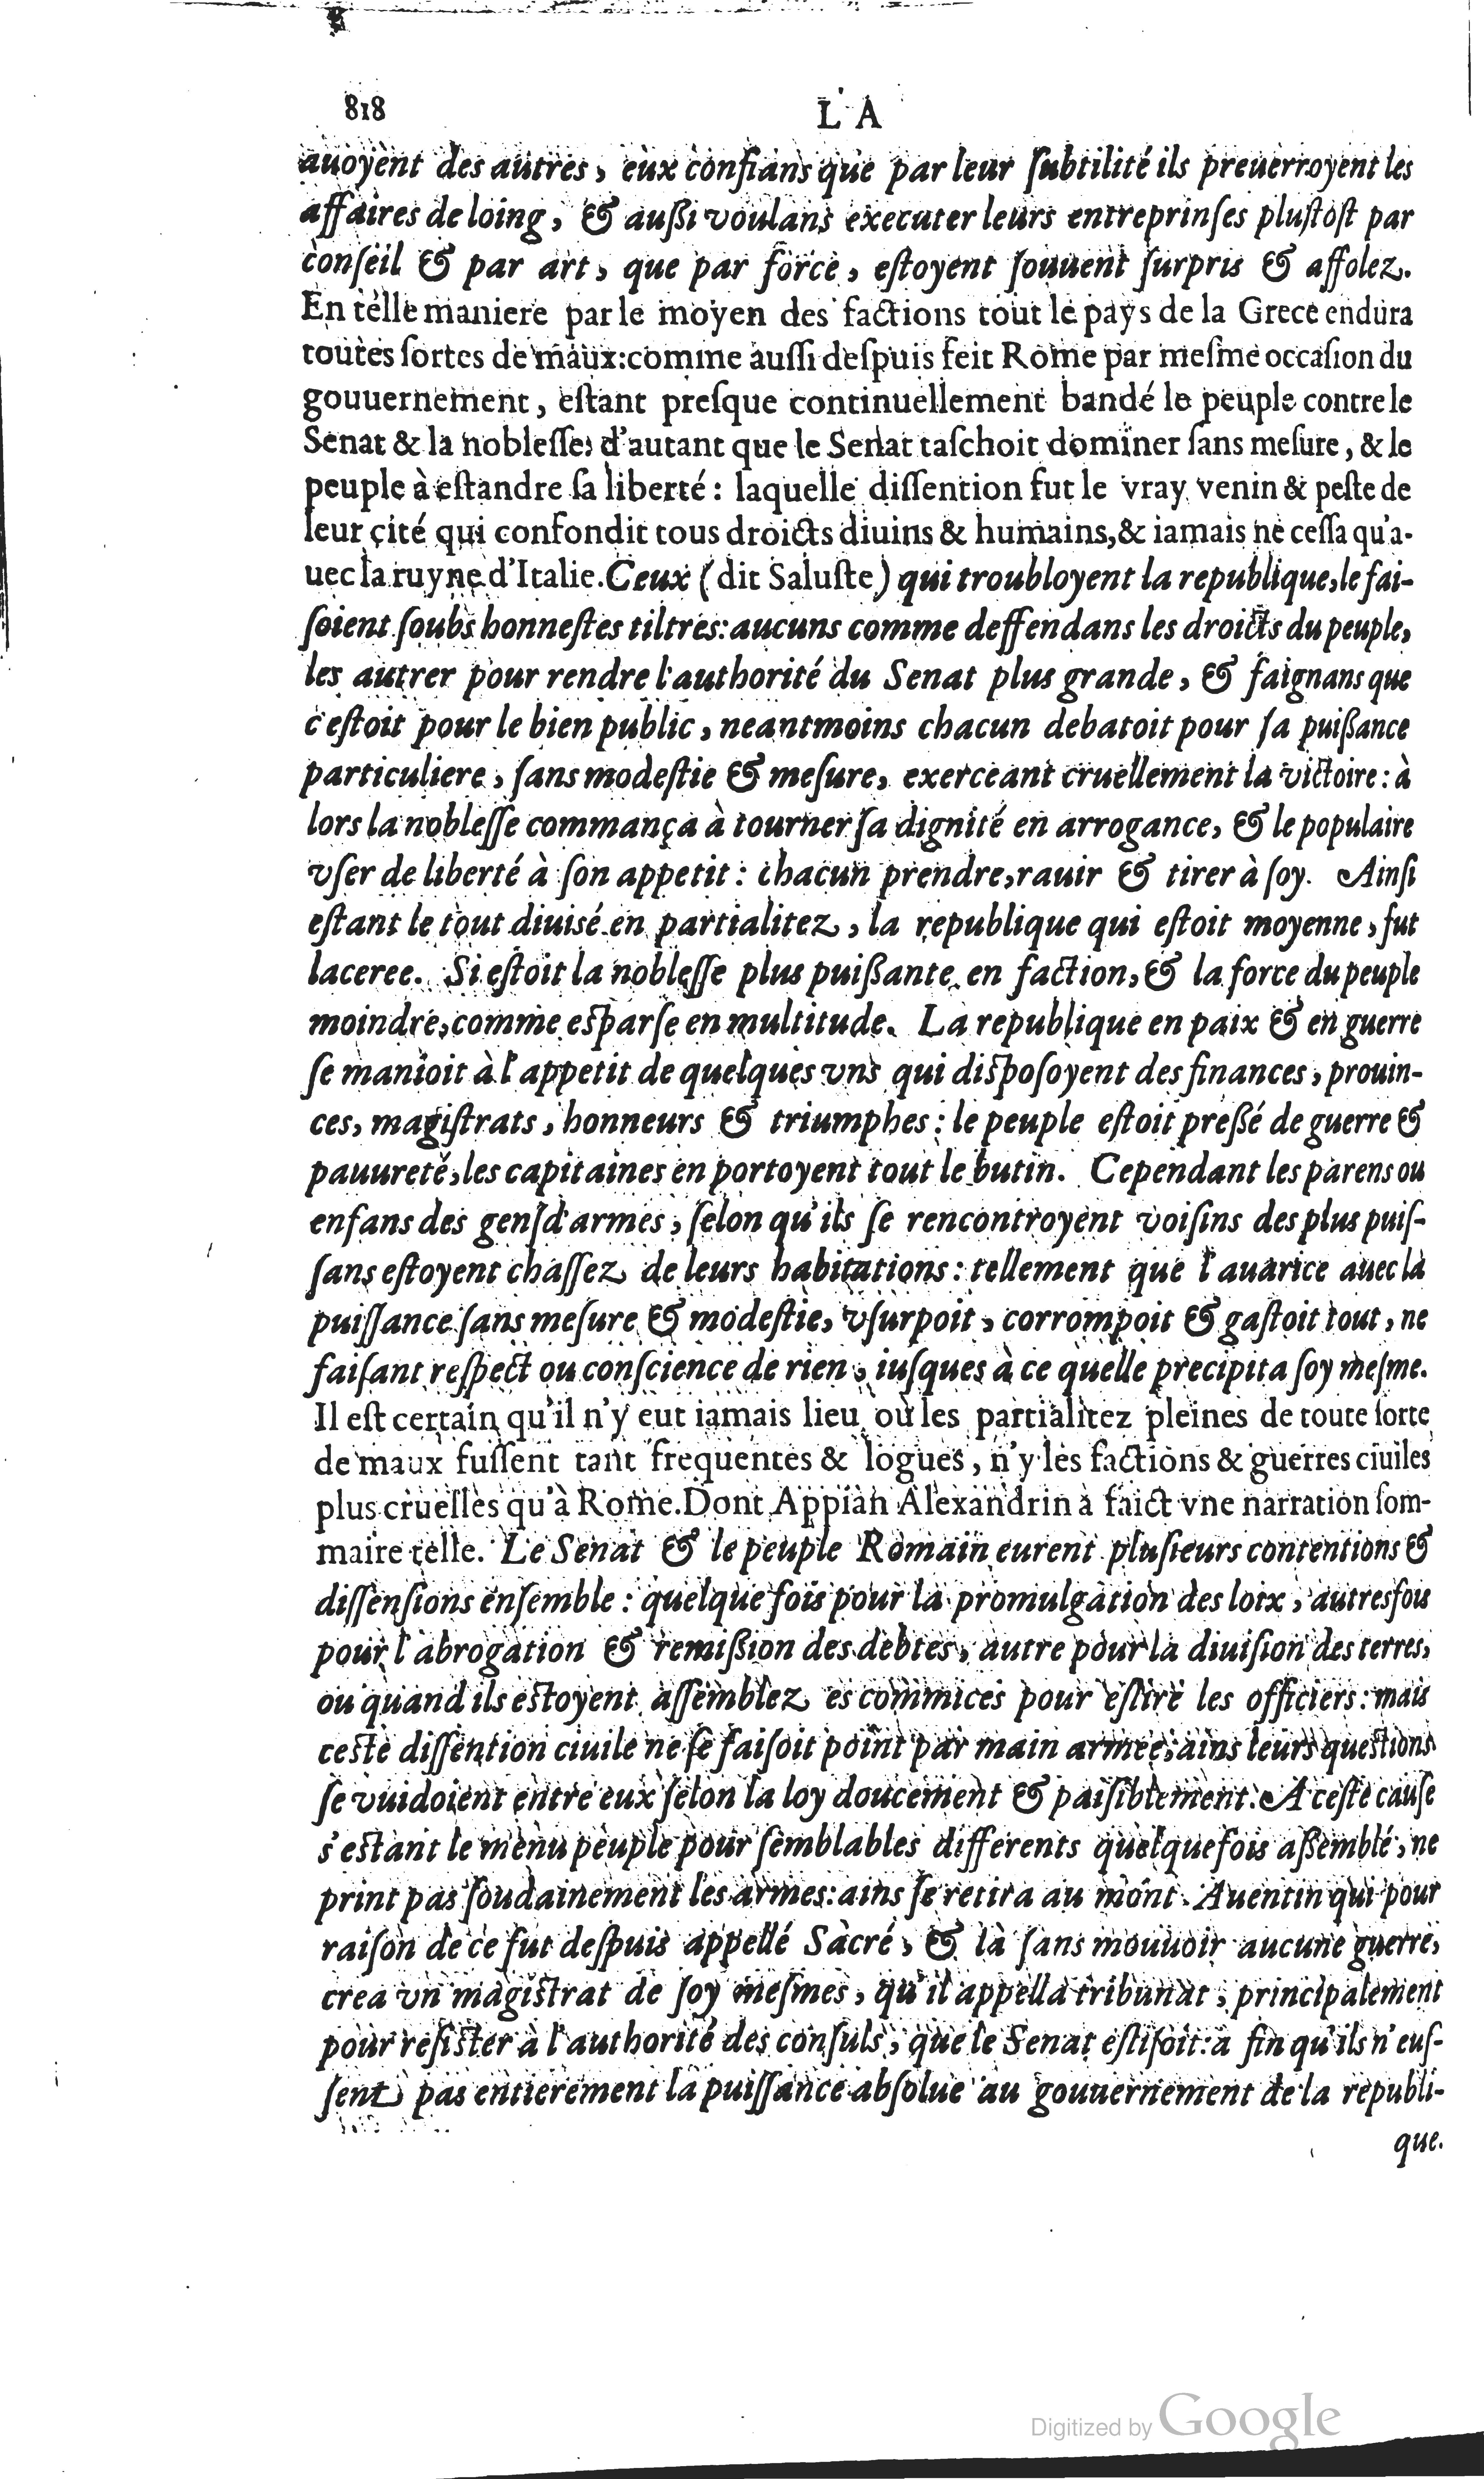 818
L'A
auoyent des autres, eux confians que par leur ſubtilité ils preuerroyent les
affaires de loing, & außi voulans executer leurs entreprinſes pluſtoſt par
conſeil & par art, que par force, eſtoyent ſouuent ſurpris & affolez.
En telle maniere par le moyen des factions tout le pays de la Grece endura
toutes ſortes de maux:comme auſſi deſpuis feit Rome par meſme occaſion du
gouuernement, eſtant preſque continuellement bandé le peuple contre le
Senat & la nobleſſe; d'autant que le Senat taſchoit dominer ſans meſure, & le
peuple à eſtandre ſa liberté: laquelle diſſention fut le vray venin & peſte de
leur cité qui confondit tous droicts diuins & humains,& iamais ne ceſſa qu'a-
uec la ruyne d'Italie. Ceux (dit Saluſte) qui troubloyent la republique,le fai-
ſoient ſoubs honneſtes tiltres: aucuns comme deffendans les droicts du peuple,
les autrer pour rendre l'authorité du Senat plus grande, & faignans que
c'eſtoit pour le bien public, neantmoins chacun debatoit pour ſa puißance
particuliere, ſans modeſtie & meſure, exerceant cruellement la victoire: à
lors la nobleſſe commança à tourner ſa dignité en arrogance, & le populaire
vſer de liberté à ſon appetit: chacun prendre,rauir & tirer à ſoy. Ainſi
eſtant le tout diuisé en partialitez, la republique qui eſtoit moyenne, fut
laceree. Si eſtoit la nobleſſe plus puißante en faction,& la force du peuple
moindre,comme esparſe en multitude. La republique en paix & en guerre
ſe manioit à l'appetit de quelques vns qui dispoſoyent des finances, prouin-
ces, magiſtrats, honneurs & triumphes: le peuple eſtoit preßé de guerre &
pauureté,les capitaines en portoyent tout le butin. Cependant les parens ou
enfans des genſd'armes, ſelon qu'ils ſe rencontroyent voiſins des plus puiſ-
ſans eſtoyent chaſſez de leurs habitations: tellement que l'auarice auec la
puiſſance ſans meſure & modeſtie, vſurpoit, corrompoit & gaſtoit tout, ne
faiſant reſpect ou conſcience de rien, iuſques à ce quelle precipita ſoy meſme.
Il eſt certain qu'il n'y eut iamais lieu où les partialitez pleines de toute ſorte
de maux fuſſent tant frequentes & logues, n'y les factions & guerres ciuiles
plus cruelles qu'à Rome. Dont Appian Alexandrin à faict vne narration ſom-
maire telle. Le Senat & le peuple Romain eurent pluſieurs contentions &
diſſenſions enſemble: quelque fois pour la promulgation des loix, autresfois
pour l'abrogation & remißion des debtes, autre pour la diuiſion des terres,
ou quand ils eſtoyent aſſemblez es commices pour eſlire les officiers: mais
ceſte diſſention ciuile ne ſe faiſoit point par main armee; ains leurs queſtions
ſe vuidoient entre eux ſelon la loy doucement & paiſiblement. A ceſte cauſe
s'eſtant le menu peuple pour ſemblables differents quelquefois aßemblé, ne
print pas ſoudainement les armes: ains ſe retira au mont Auentin qui pour
raiſon de ce fut deſpuis appellé Sacré, & là ſans mouuoir aucune guerre,
crea vn magiſtrat de ſoy meſmes, qu'il appella tribunat, principalement
pour reſiſter à l'authorité des conſuls, que le Senat eſliſoit: a fin qu'ils n'euſ-
ſent pas entierement la puiſſance abſolue au gouuernement de la republi-
que.
Digitized by Google